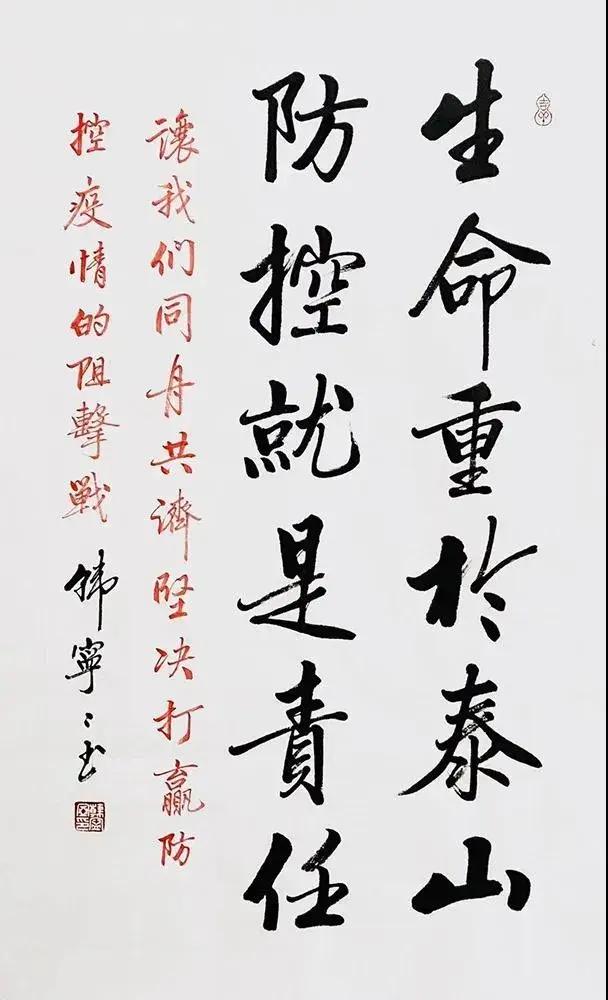 生命重於泰山
防控就是責任
讓我们同舟共濟堅决打贏防
控疫情的阻擊戰 韩寧〻书